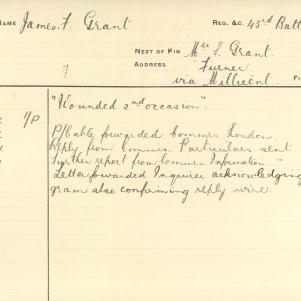 NAME James. F. Grant REG. &C. 43rd Batt
NEXT OF KIN Mrs S. Grant.
ADDRESS Furner
via Millicent.
"Wounded 2nd occasion".
1/P P/Cable forwarded Commrs London.
Reply from Commrs. Particulars sent
Further report from Commrs Information "
Letter forwarded Inquirer acknowledging
gram also confirming reply wire.